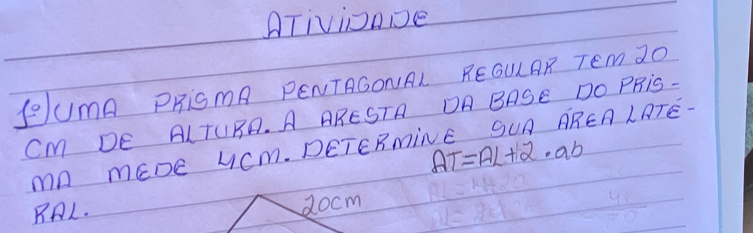 ATIVIDADE
1º) UMA PRISMA PENTAGONAL REGULAR TEM 20
CM DE ALTURA. A ARESTA DA BASE DO PRIS-
MA MEDE 4CM. DETERMINE SUA ÁREA LATE-
RAL.
AT=AL+2.ab
20cm